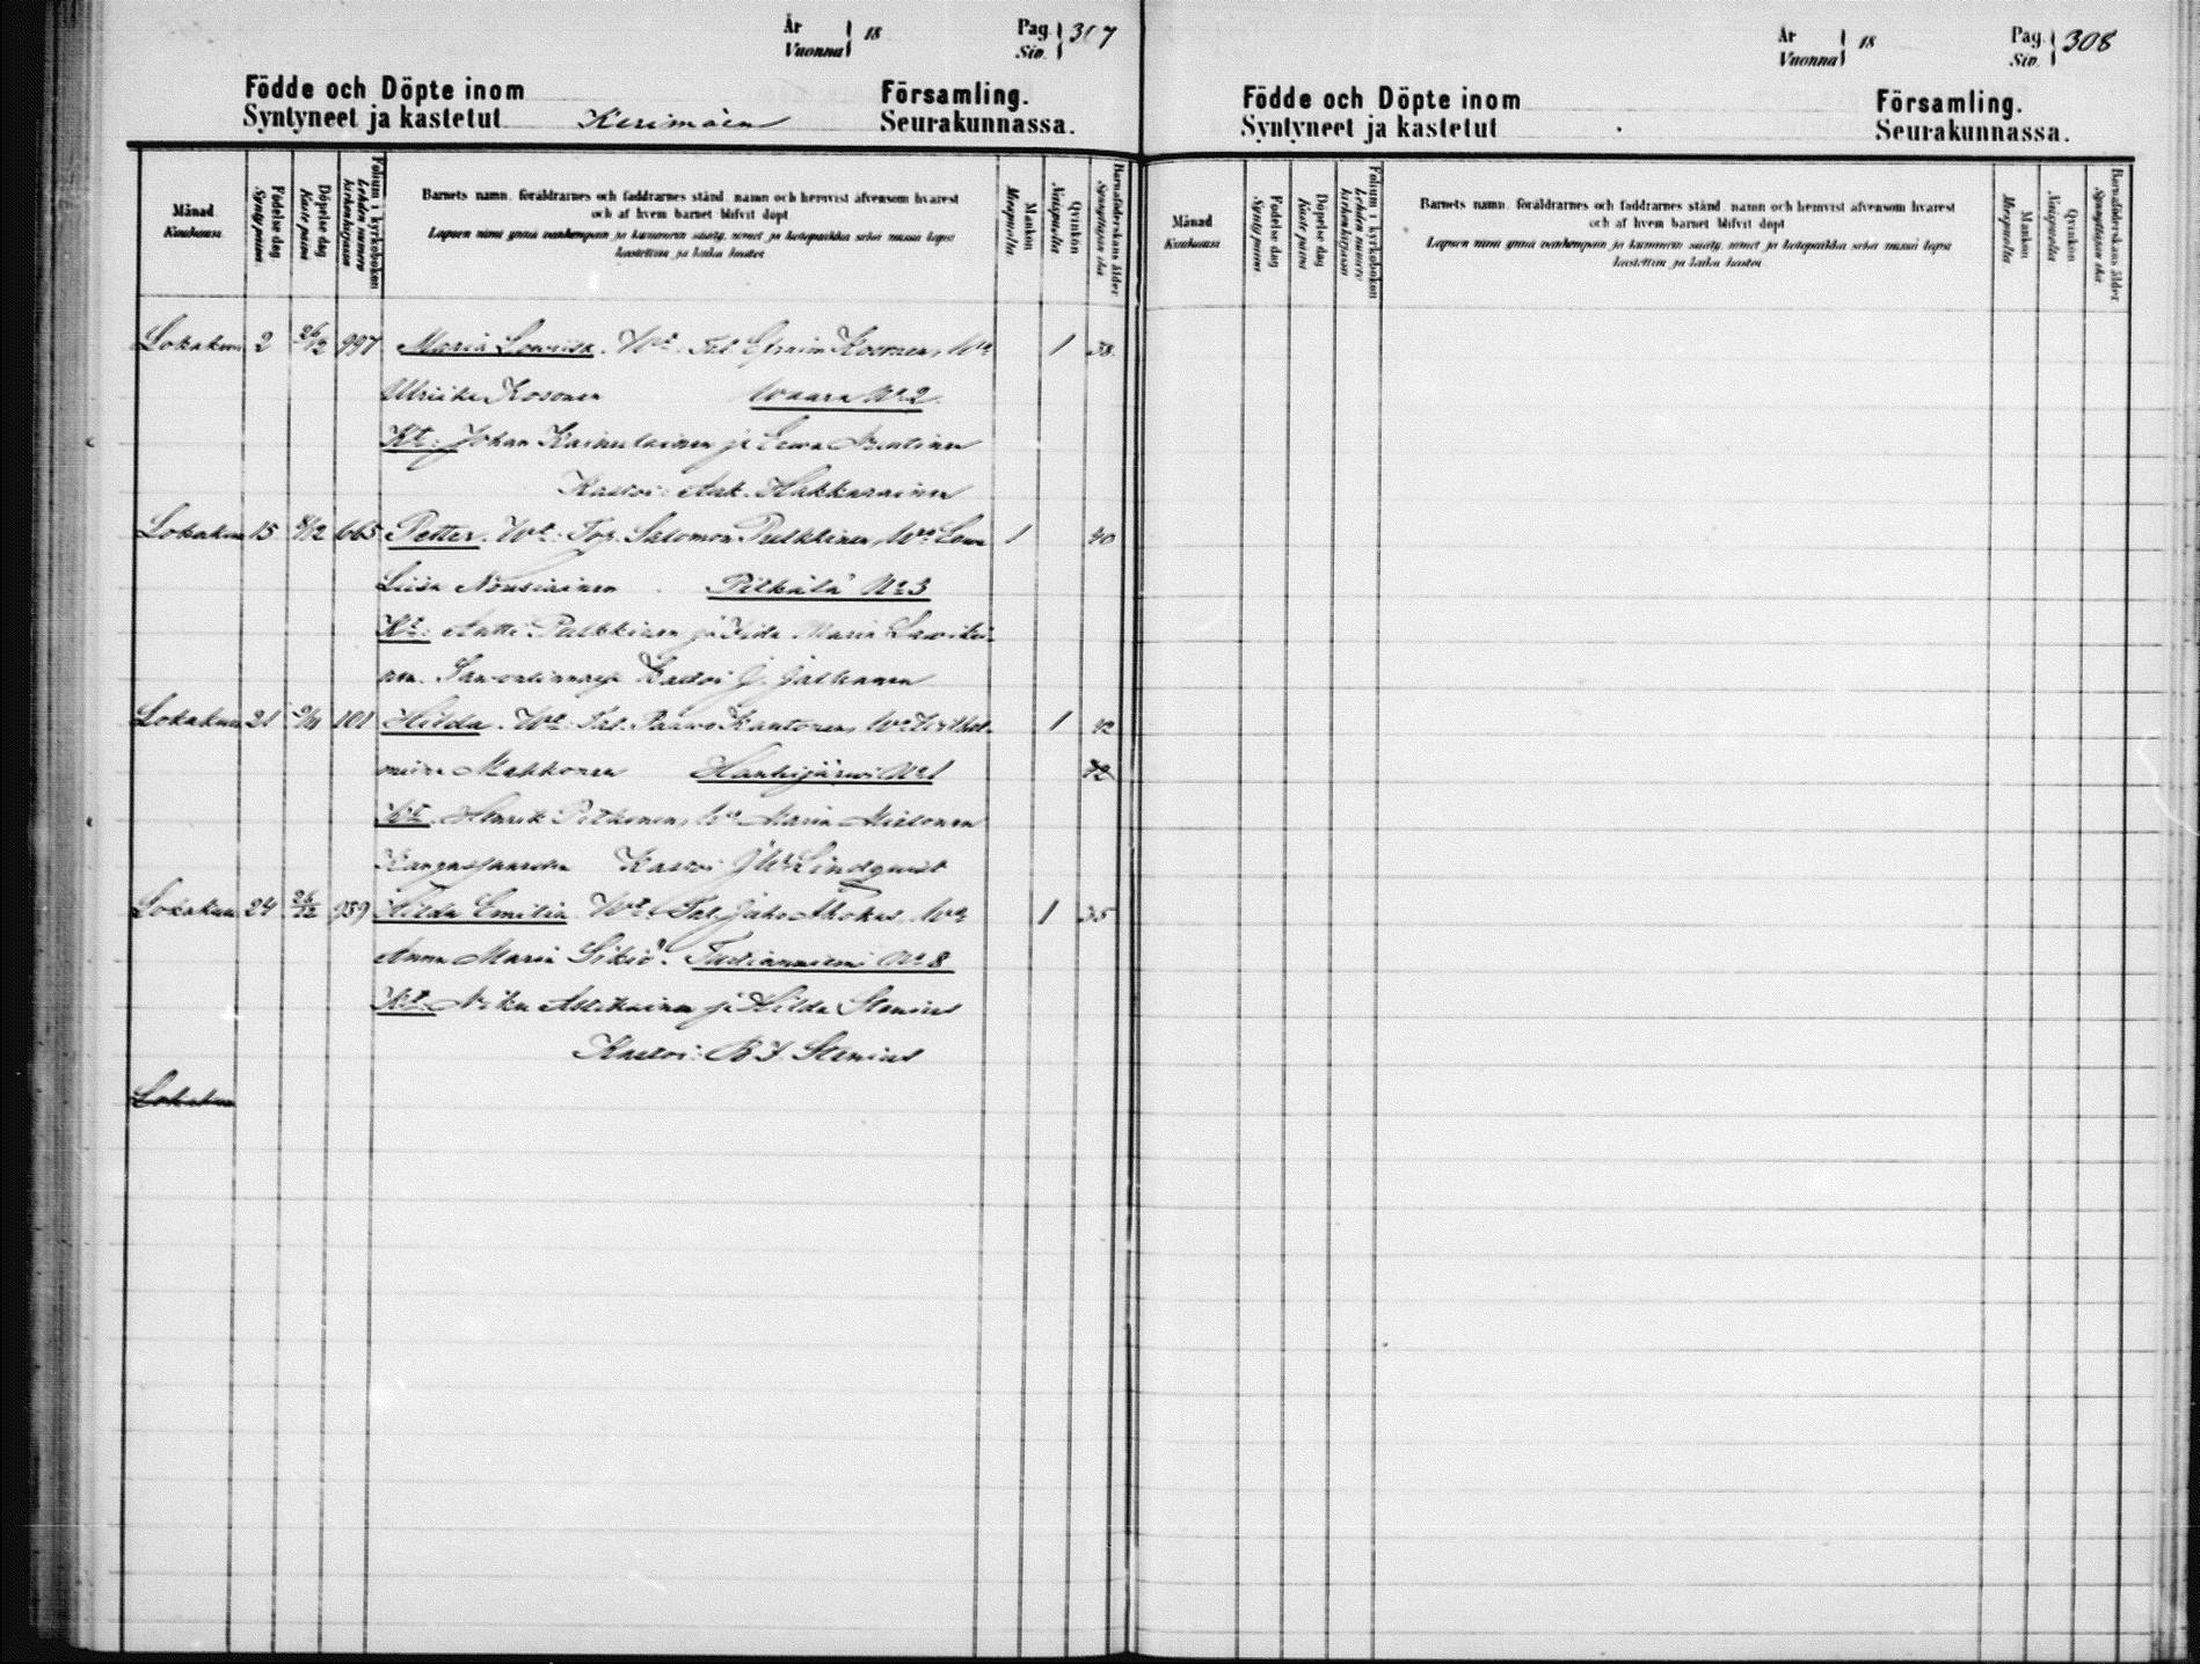 År
Vuonna } 18
Pag.
Siv. } 307
Födde och Döpte inom Församling.
Syntyneet ja kastetut Kerimäen Seurakunnassa.
Månad
Kuukausi
Födelse dag
Synty päivä
Döpelse dag
Kaste päivä
Folium i kyrkoboken
Lehden numero
kirkonkirjassa
Barnets namn, föräldrarnes och faddrarnes stånd, namn och hemvist äfvensom hvarest
och af hvem barnet blifvit döpt
Lapsen nimi ynnä vanhempain ja kummein sääty, nimet ja kotopaikka sekä missä lapsi
kastettiin ja kuka kastoi
Mankön
Miespuolia
Qvinkön
Naispuolia
Barnaföderskans ålder
Synnyttäjän ikä
Lokakuu 2 26/12 997 Maria Lowiisa. Wt. Tal. Efraim Kosonen, Wo 1 38
Ulriika Kosonen Waara No 2.
Kt: Johan Karhulainen ja Eewa
Kastoi: Ant. Hakkarainen
Lokakuu 15 8/12 665 Petter. Wt: Salomon Pulkkinen, Wo Eewa 1 40
Liisa Nousiainen Pitkälä No 3
Kt: Antti Pulkkinen ja Iida Maria
Savonlinnasta Kastoi J. Jalkanen
Lokakuu 21 101 Hilda. Wt: Tal. Paawo Kautonen, Wo 1 42
Makkonen No 1
Kt. Henrik Pitkonen, Wo Maria
Kastoi J W Lindqwist
Lokakuu 24 26/12 989 Hilda Emilia. Wt: Tal. Juho Ahokas, Wo 1 35
Anna Maria Sikiö. Tuotianniemi No 8
Kt: ja Hilda Stenius
Kastoi: Stenius
Lokakuu
År
Vuonna } 18
Pag.
Siv. } 308
Födde och Döpte inom Församling.
Syntyneet ja kastetut Seurakunnassa.
Månad
Kuukausi
Födelse dag
Synty päivä
Döpelse dag
Kaste päivä
Folium i kyrkoboken
Lehden numero
kirkonkirjassa
Barnets namn, föräldrarnes och faddrarnes stånd, namn och hemvist äfvensom hvarest
och af hvem barnet blifvit döpt
Lapsen nimi ynnä vanhempain ja kummein sääty, nimet ja kotopaikka sekä missä lapsi
kastettiin ja kuka kastoi
Mankön
Miespuolia
Qvinkön
Naispuolia
Barnaföderskans ålder
Synnyttäjän ikä